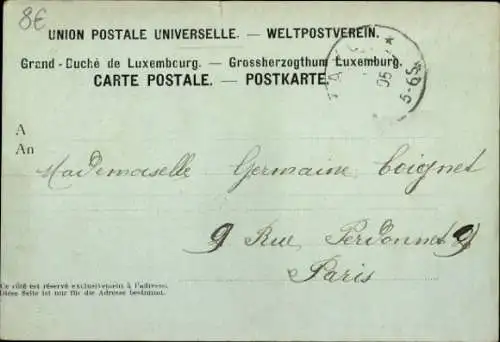 8€
UNION POSTALE UNIVERSELLE. — WELTPOSTVEREIN.
Grand-Duché de Luxembourg. — Grossherzogthum Luxemburg.
CARTE POSTALE. — POSTKARTE.
05
5-6S
A
An
Mademoiselle Germaine Coignet
9 Rue Perdonnet 9
Paris
Ce côté est réservé exclusivement à l'adresse.
Diese Seite ist nur für die Adresse bestimmt.